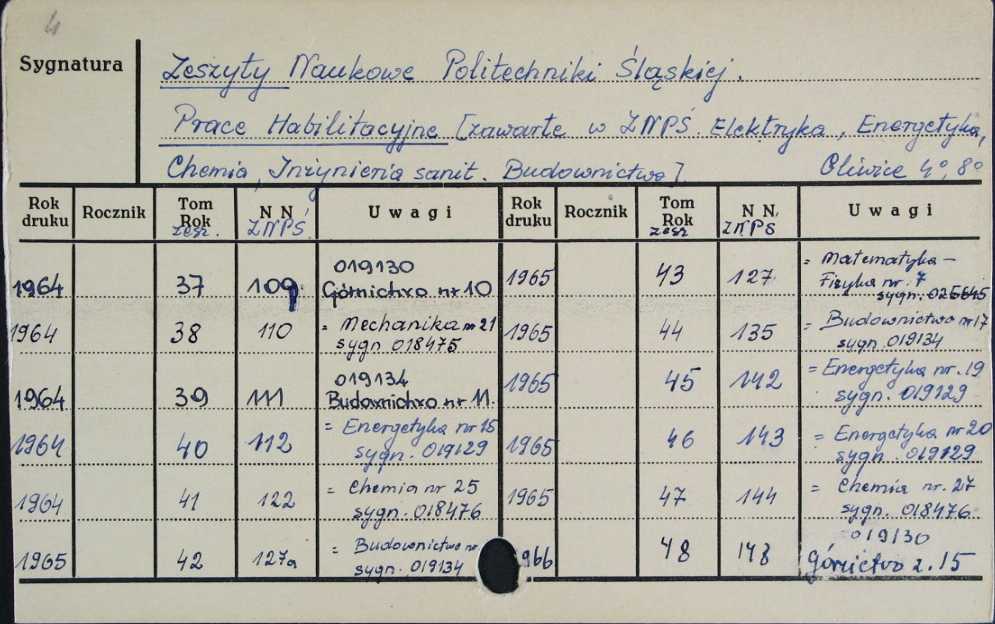 4
Sygnatura
Zeszyty Naukowe Politechniki Śląskiej.
Prace Habilitacyjne [zawarte w ZNPŚ. Elektryka, Energetyka,
Chemia, Inżynieria sanit. Budownictwo] Gliwice 4°, 8°
Rok druku Rocznik Tom Rok zesz. N N ZNPŚ Uwagi Rok druku Rocznik Tom Rok zesz N N. ZNPS Uwagi
1964 37 109 019130 Górnichwo nr 10 1965 43 127 = Matematyka - Fizyka nr. 7 sygn. 025645
1964 38 110 = Mechanika nr 21 sygn 018475 1965 44 135 = Budownictwo nr 17 sygn 019134
1964 39 111 019134 Budownichwo nr 11. 1965 45 142 = Energetyka nr. 19 sygn. 019129
1964 40 112 = Energetyka nr 15 sygn. 019129 1965 46 143 = Energetyka nr 20 sygn. 019129
1964 41 122 = Chemia nr 25 sygn. 018476 1965 47 144 = Chemia nr. 27 sygn. 018476
1965 42 127a = Budownictwo nr sygn. 019134 966 48 148 019130 Górnictwo z. 15